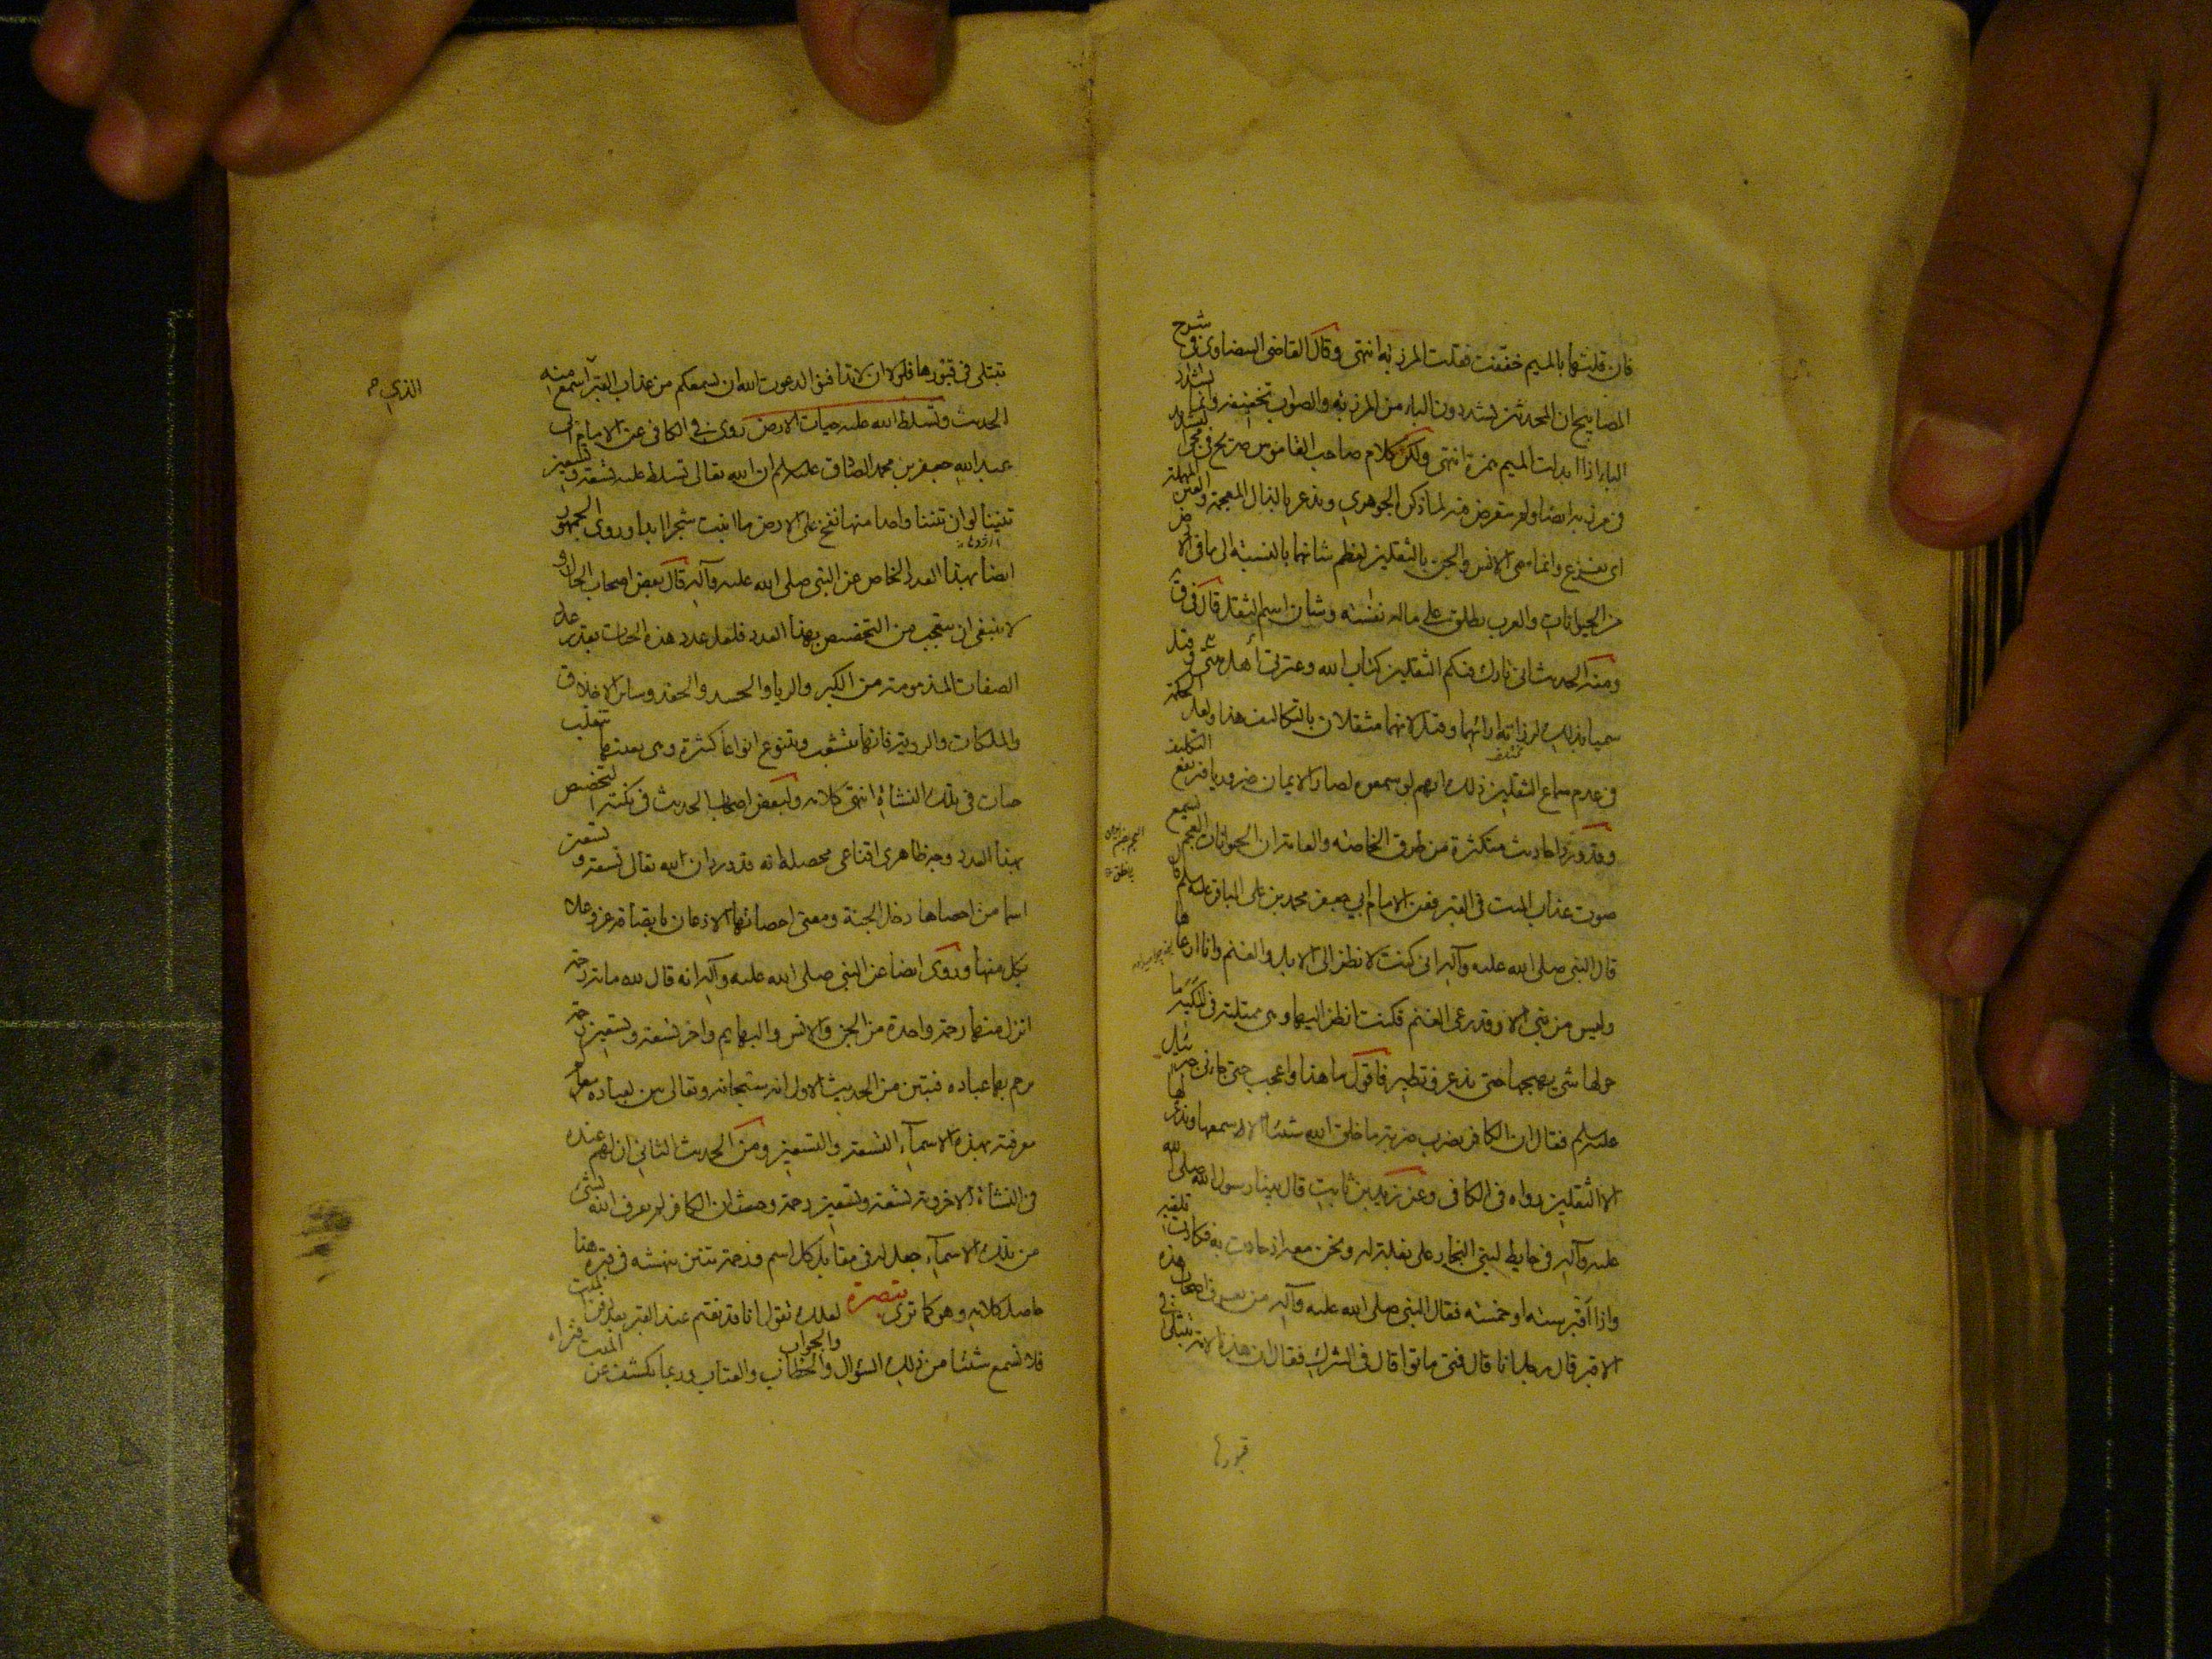 فان قلتها بالميم خففت فقلت المرزبة انتهى وقال القاضي البيضاوي في شرح
المصابيح ان المحدثين يشددون الباء من المرزبة والصواب تخفيفه وانما يشدد
الباء اذا ابدلت الميم همزة انتهى ولكن كلام صاحب القاموس صريح في مجئ التشديد
في مرزبة ايضا ولم يتعرض فيه لما ذكره الجوهري ويذعر بالذال المعجمة والعين المهملة
اي يفزع وانما سمي الانس والجن بالثقلين لعظم شانهما بالنسبة الى ما في الارض
من الحيوانات والعرب يطلق على ماله نفسة وشان اسم الثقل قال في ق
ومنه الحديث اني تارك فيكم الثقلين كتاب الله وعترتي أهل بيتي وقيل
سميا بذلك لرزانة ارائهما وقيل لانهما مثقلان بالتكاليف هذا ولعل الحكمة
في عدم سماع الثقلين ذلك انهم لو سمعوه لصار الايمان ضروريا فيرتفع التكليف
وقد ورد احاديث متكثرة من طرق الخاصة والعامة ان الحيوانات العجم تسمع
صوت عذاب الميت في القبر فعن الامام أبي جعفر محمد بن علي الباقر عليه السلم قال
قال النبي صلى الله عليه وآله اني كنت لانظر الى الابل والغنم وانا ارعاها
وليس من نبي الا وقد رعى الغنم فكنت انظر اليها وهي ممتلية في المكينة ما
حولها شئ يهيجها حتى يذعر فتطير فاقول ما هذا واعجب حتى جاءني جبرئيل
عليه السلم فقال ان الكافر يضرب ضربة ما خلق الله شيئا الا سمعها ويذعر لها
الا الثقلين رواه في الكافي وعن زيد بن ثابت قال بينا رسول الله صلى الله
عليه وآله في حايط لبني النجار على بغلة له ونحن معه اذ حادت به فكادت تلقيه
واذا أقبر ستة او خمسة فقال النبي صلى الله عليه وآله من يعرف اصحاب هذه
الاقبر قال رجل انا قال فمتى ماتوا قال في الشرك فقال ان هذه الامة تبتلى في
قبورها
تبتلى في قبورها فلولا ان لا تدافنوا لدعوت الله ان يسمعكم من عذاب القبر اسمع منه
الذي
الحديث وتسلط الله عليه حيات الارض روى في الكافي عن الامام ابي
عبد الله جعفر بن محمد الصادق عليه السلم ان الله تعالى تسلط عليه تسعة وتسعين
تنينا لو ان تنينا واحدا منها نفخ على الارض ما انبتت شجرا ابدا وروى الجمهور
ايضا بهذا العدد الخاص عن النبي صلى الله عليه وآله قال بعض اصحاب الحال و
لا ينبغي ان يتعجب من التخصيص بهذا العدد فلعل عدد هذه الحيات بقدر عدد
الصفات المذمومة من الكبر والريا والحسد والحقد وساير الاخلاق
والملكات والردية فانها تتشعب وتتنوع انواعا كثيرة وهي بعينها تنقلب
حيات في تلك النشاة انتهى كلامه ولبعض اصحاب الحديث في نكتة التخصيص
بهذا العدد وجه ظاهري اقناعي محصله انه قد ورد ان لله تعالى تسعة و تسعين
اسما من احصاها دخل الجنة ومعنى احصائها الاذعان باتصافه عز وعلا
بكل منها وروى ايضا عن النبي صلى الله عليه وآله انه قال لله ماية رحمة
انزل منها رحمة واحدة من الجن والانس والبهايم واخر تسعة وتسعين رحمة
يرحم بها عباده فتبين من الحديث الاول انه سبحانه وتعالى بين لعباده معالم
معرفته بهذه الاسمآء التسعة والتسعين ومن الحديث الثاني ان لهم عنده
في النشاة الاخروية تسعة وتسعين رحمة وحيث ان الكافر لم يعرف الله بشئ
من تلك الاسمآء جعل له في مقابل كل اسم ورحمة تنين ينهشه في قبره هذا
حاصل كلامه وهو كما ترى تبصرة لعلك تقول انا قد نقيم عند القبر بعد دفن الميت
فلا نسمع شيئا من ذلك السؤال والجواب والخطاب والعتاب وربما نكشف عن الميت فنراه